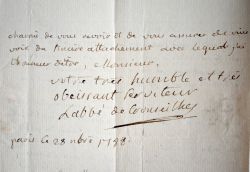 charmé de vous revoir et de vous assurer de vive
voix du sincère attachement avec lequel j'ai
l'honneur d'etre, Monsieur,
votre très humble et très
obeissant serviteur
L'abbé de
paris le 28 1788.